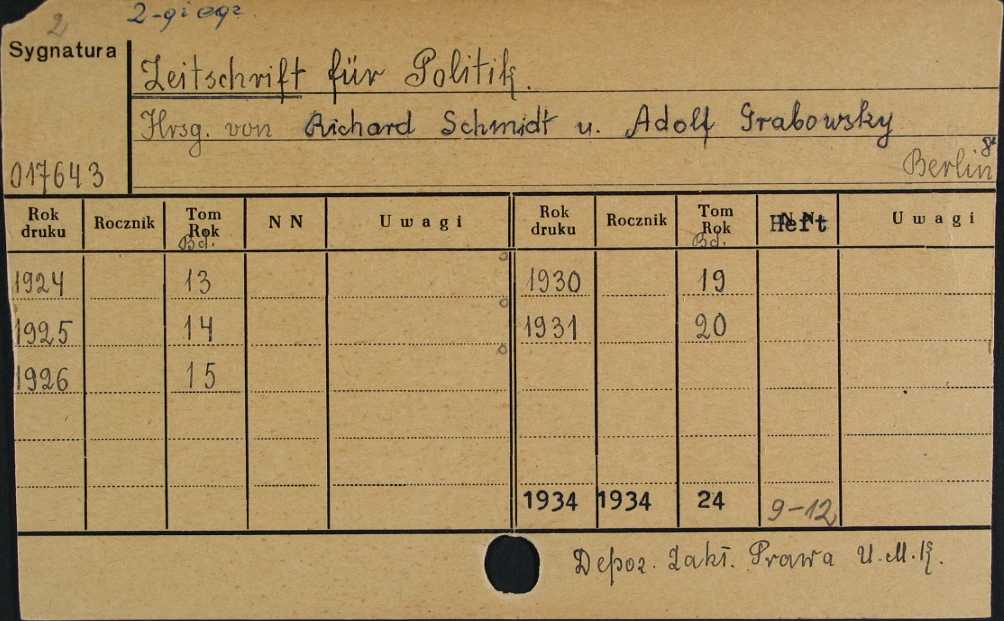 2 2-gi egz.
Sygnatura
Zeitschrift für Politik.
Hrsg. von Richard Schmidt u. Adolf Grabowsky
017643 Berlin 8°
Rok druku Rocznik Tom Rok Bd. N N Uwagi Rok druku Rocznik Tom Rok Bd. Heft Uwagi
1924 13 1930 19
1925 14 1931 20
1926 15
1934 1934 24 9-12
Depoz. Zakł. Prawa U.M.K.